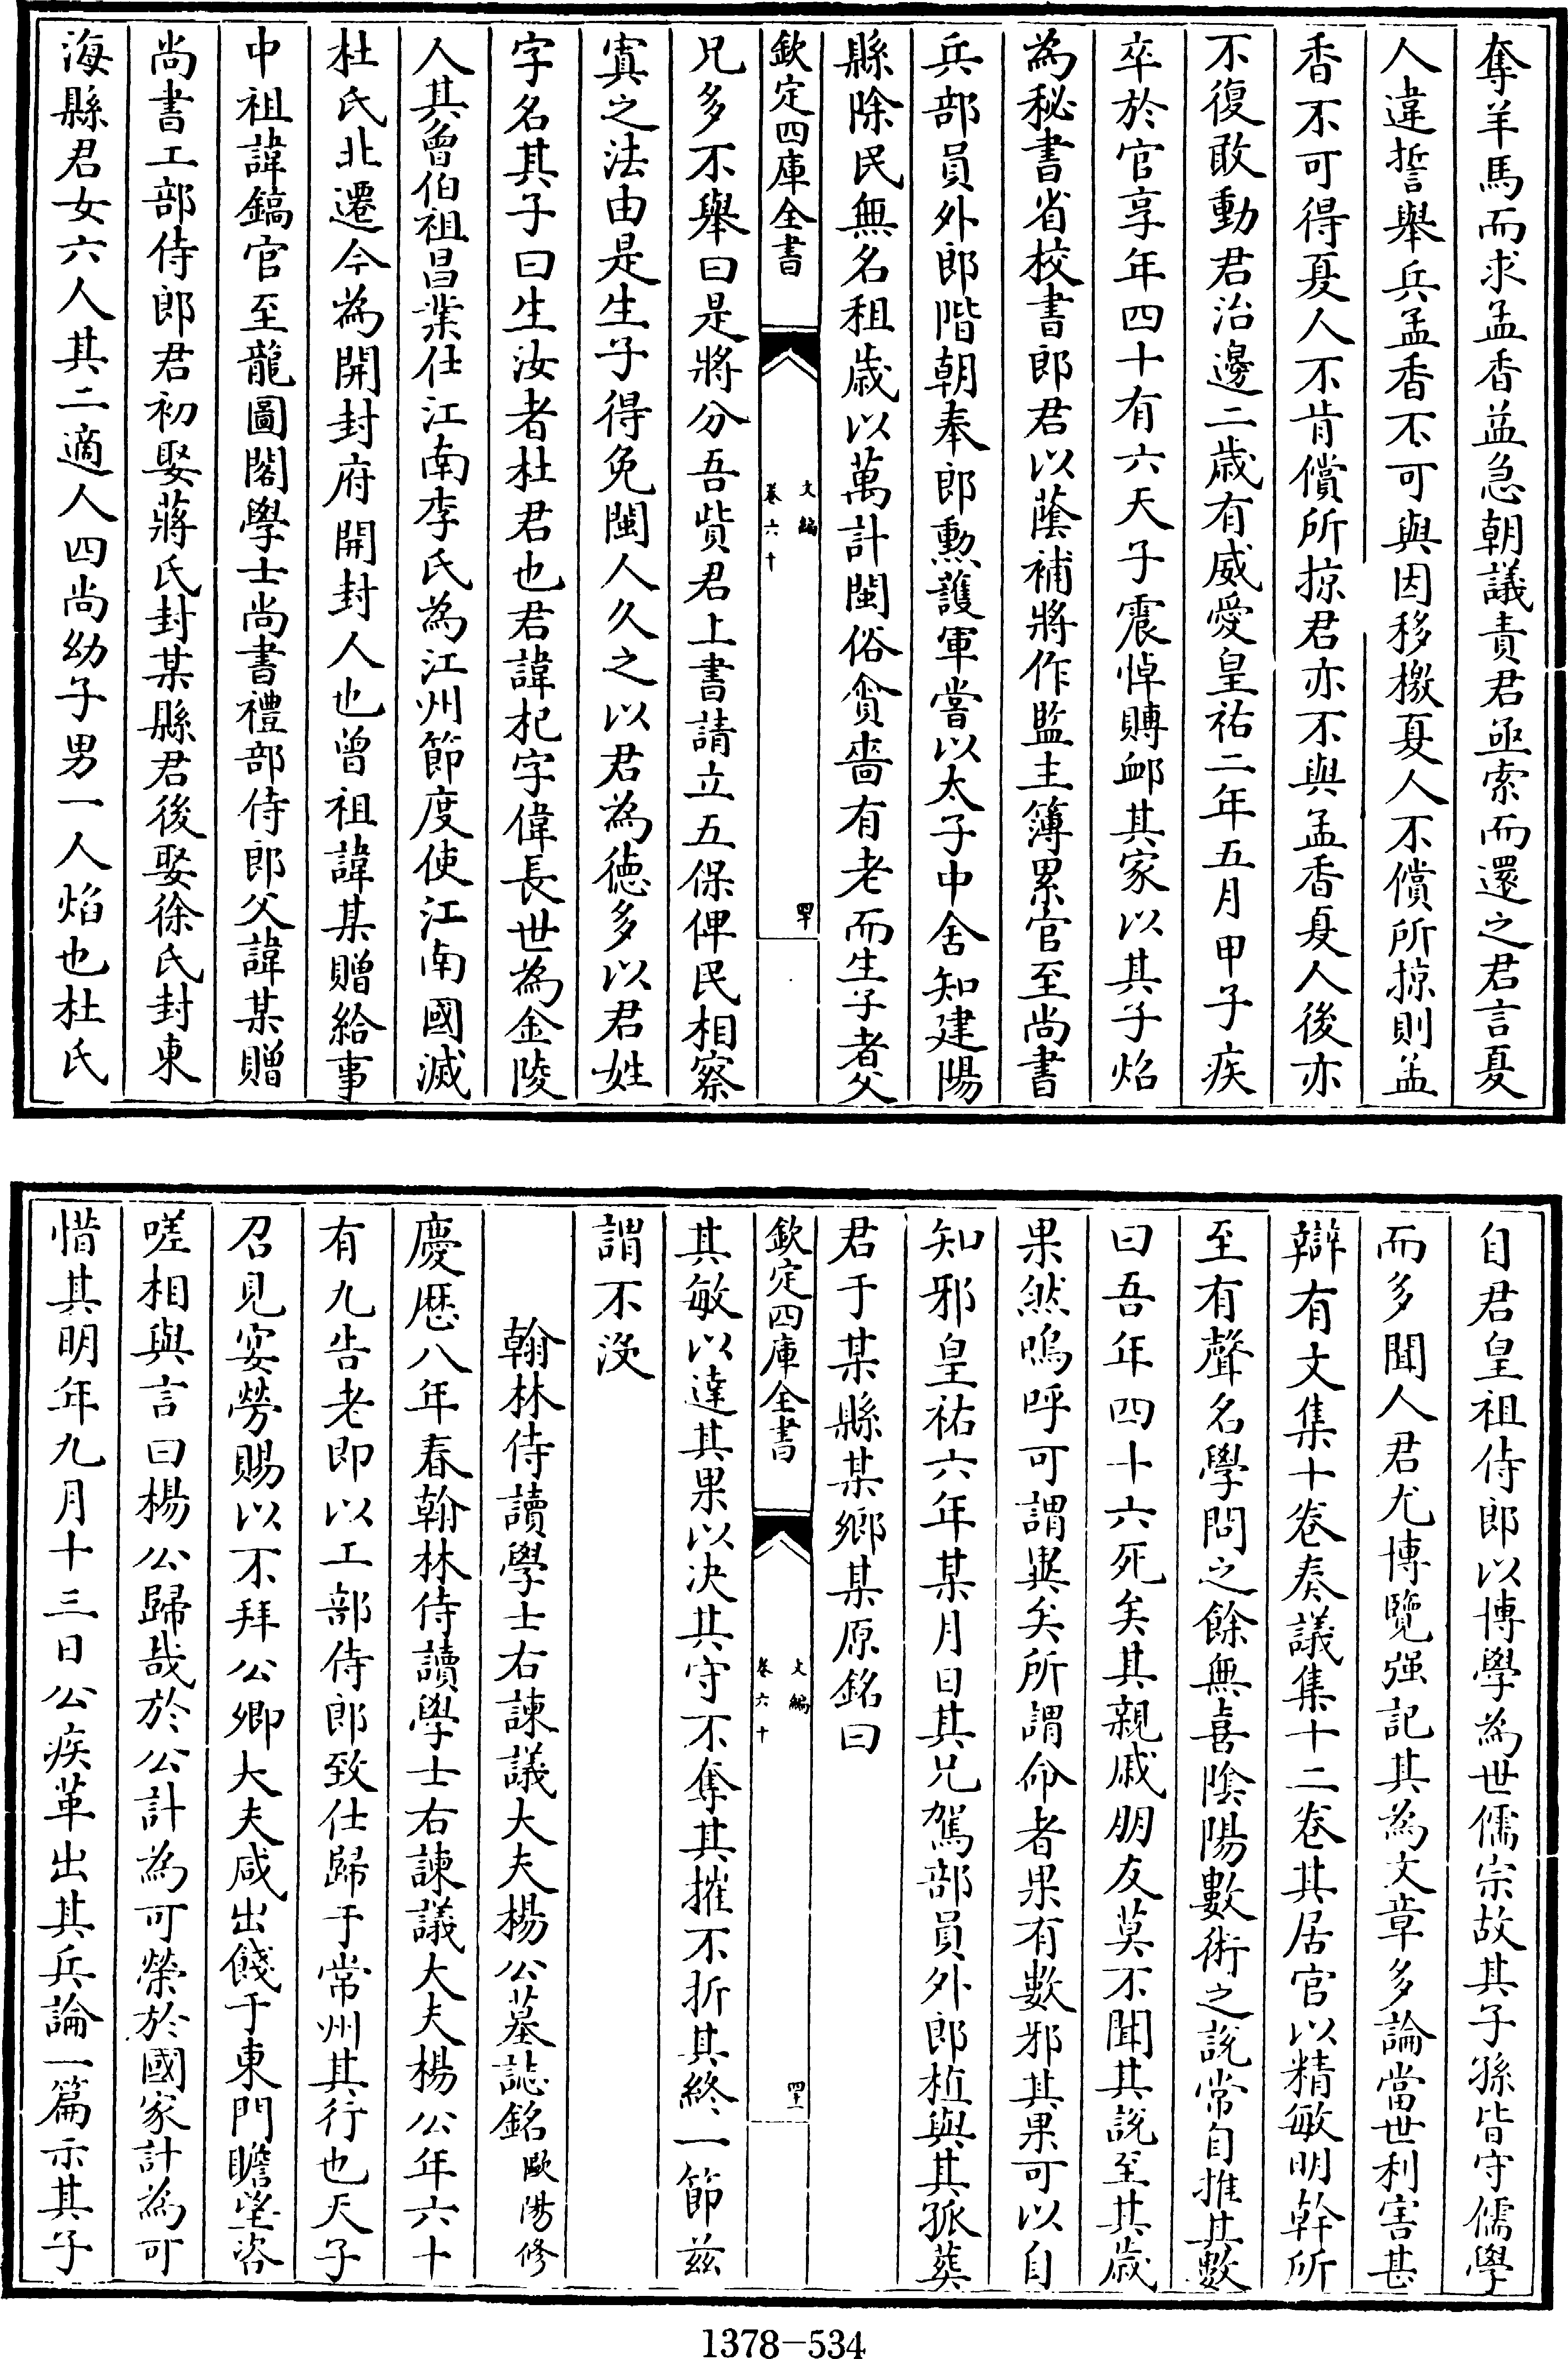 奪羊馬而求孟香益急朝議責君亟索而還之君言夏
人違誓舉兵孟香不可與因移檄夏人不償所掠則孟
香不可得夏人不肯償所掠君亦不與孟香夏人後亦
不復敢動君治邊二歲有威愛皇祐二年五月甲子疾
卒於官享年四十有六天子震悼賻䘏其家以其子焰
為秘書省校書郎君以蔭補將作監主簿累官至尚書
兵部員外郎階朝奉郎勲護軍嘗以太子中舍知建陽
縣除民無名租歲以萬計閩俗貪嗇有老而生子者父
欽定四庫全書
文編
卷六十
四十
兄多不舉曰是將分吾貲君上書請立五保俾民相察
寘之法由是生子得免閩人久之以君為德多以君姓
字名其子曰生汝者杜君也君諱杞字偉長世為金陵
人其曾伯祖昌業仕江南李氏為江州節度使江南國滅
杜氏北遷今為開封府開封人也曾祖諱某贈給事
中祖諱鎬官至龍圖閣學士尚書禮部侍郎父諱某贈
尚書工部侍郎君初娶蔣氏封某縣君後娶徐氏封東
海縣君女六人其二適人四尚幼子男一人焰也杜氏
自君皇祖侍郎以博學為世儒宗故其子孫皆守儒學
而多聞人君尤博覽强記其為文章多論當世利害甚
辯有文集十卷奏議集十二卷其居官以精敏明幹所
至有聲名學問之餘無喜陰陽數術之説常自推其數
曰吾年四十六死矣其親戚朋友莫不聞其説至其歲
果然嗚呼可謂異矣所謂命者果有數邪其果可以自
知邪皇祐六年某月日其兄駕部員外郎植與其孤葬
君于某縣某鄉某原銘曰
欽定四庫全書
文編
卷六十
四十一
其敏以達其果以決其守不奪其摧不折其終一節兹
謂不沒
翰林侍讀學士右諫議大夫楊公墓誌銘歐陽修
慶厯八年春翰林侍讀學士右諫議大夫楊公年六十
有九告老即以工部侍郎致仕歸于常州其行也天子
召見宴勞賜以不拜公卿大夫咸出餞于東門瞻望咨
嗟相與言曰楊公歸哉於公計為可榮於國家計為可
惜其明年九月十三日公疾革出其兵論一篇示其子
1378-534